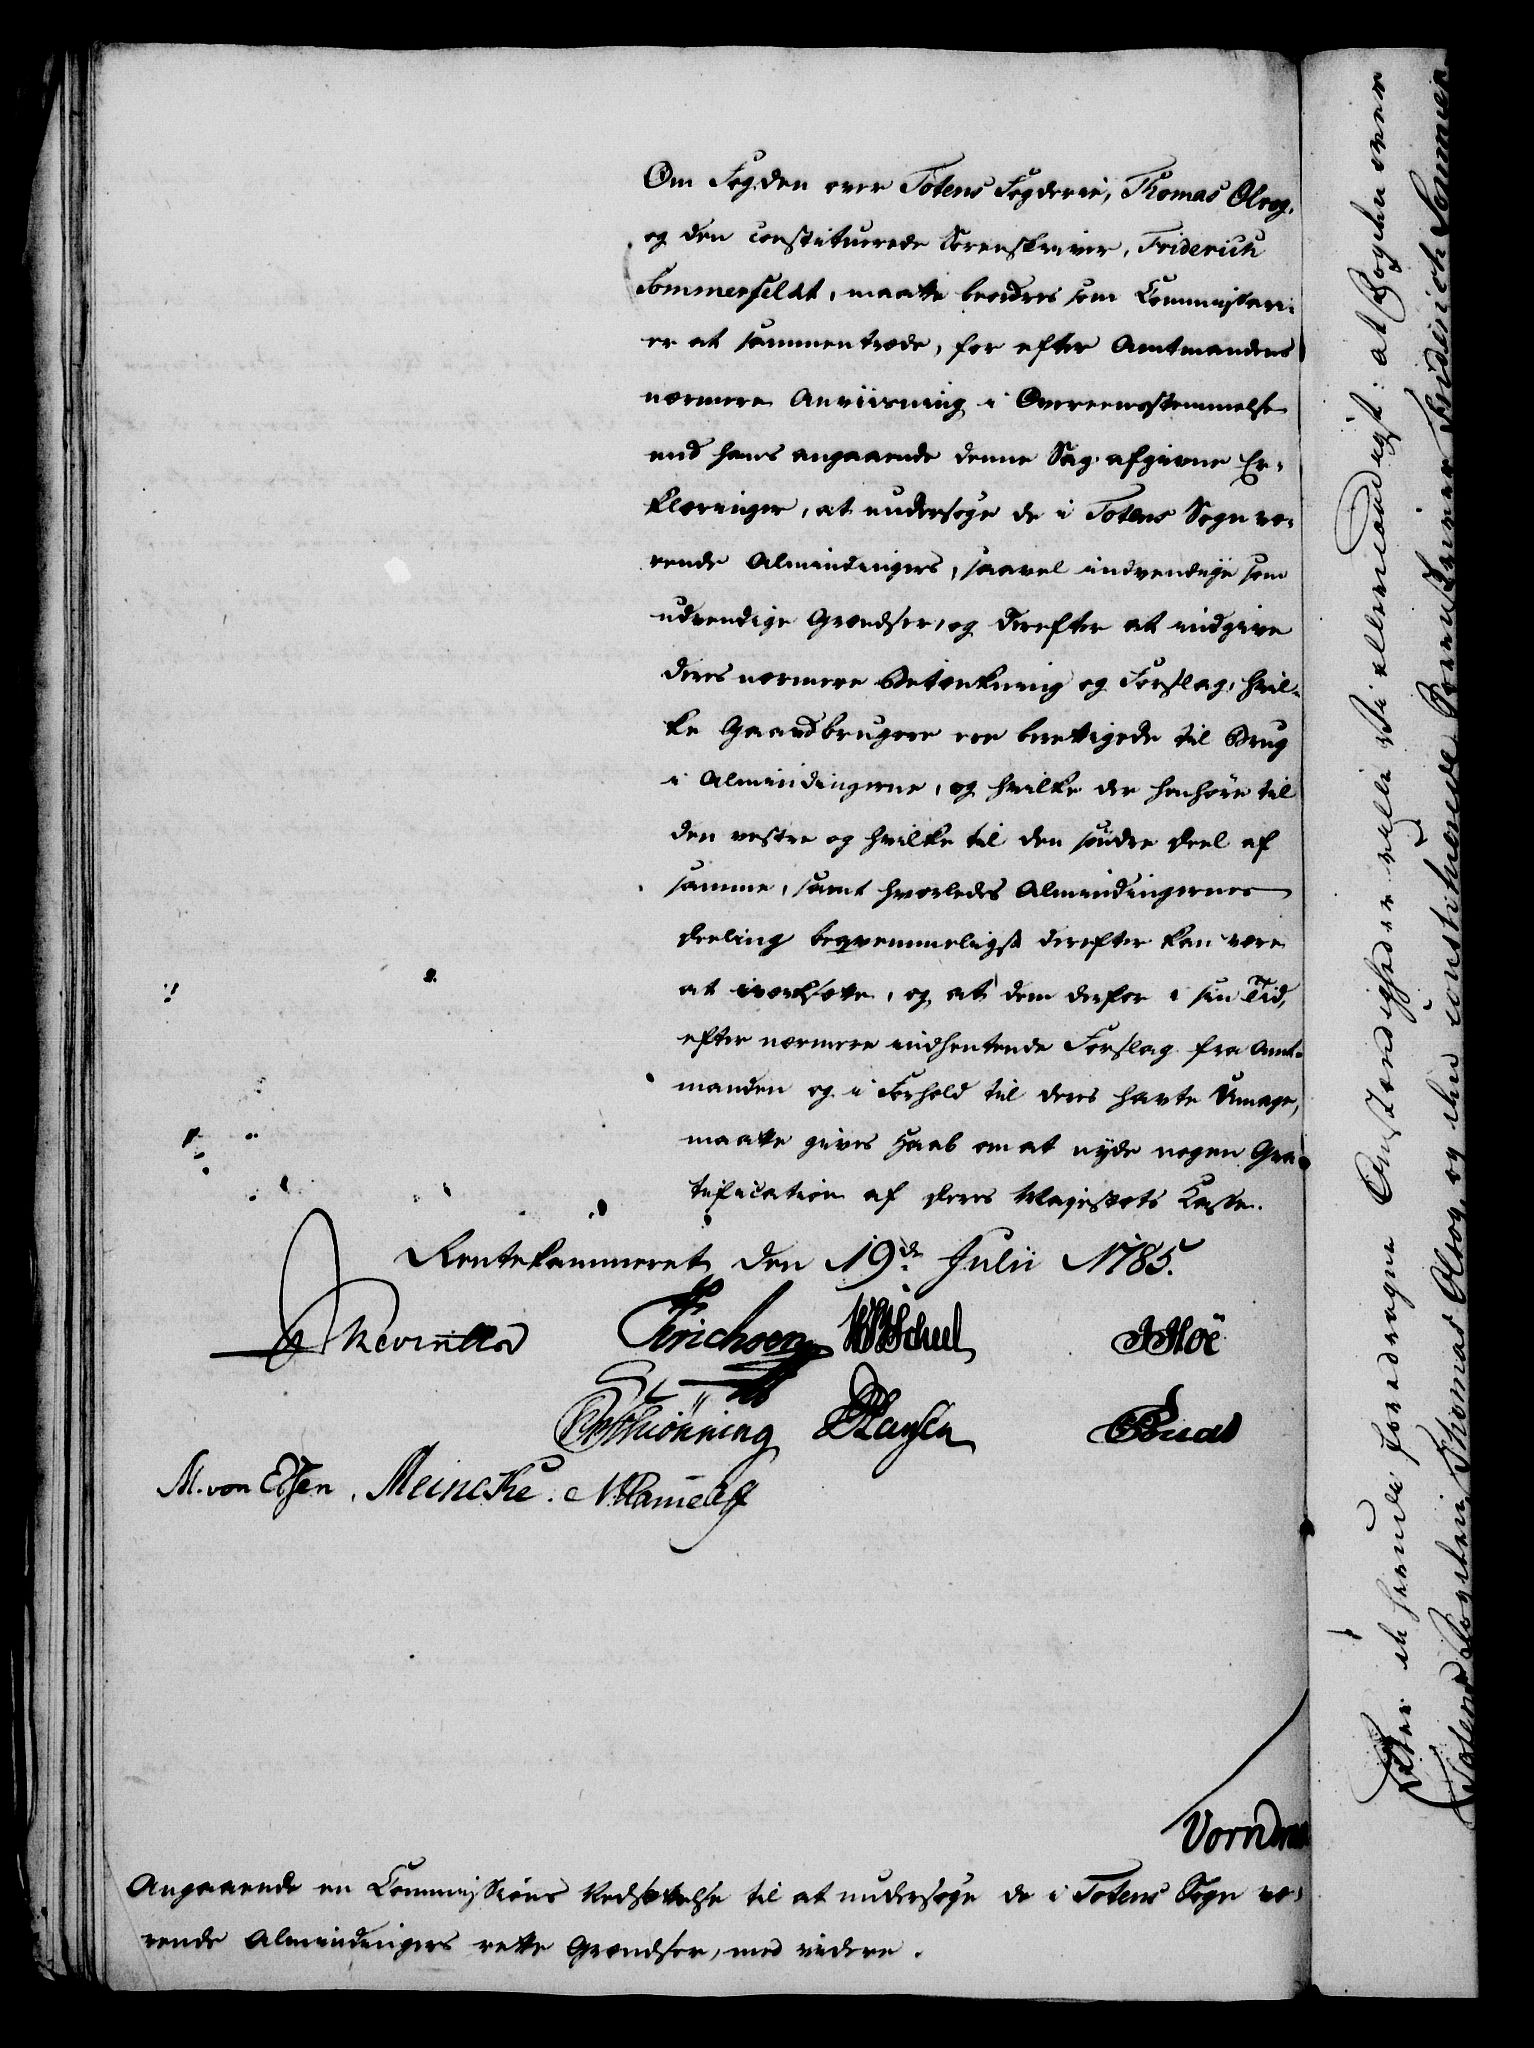 Om Fogden over Totens Fogderie, Thomas Olrog,
og den constituerede Sorenskriver, Friderich
Sommerfeldt, maatte beordres som Commissari-
er at sammentræde, for efter Amtmandens
nærmere Anviisning i Overeensstemmelse
med hans angaaende denne Sag afgivne Er-
klæringer, at undersøge de i Totens Sogn væ-
rende Almindingers, saavel indvendige som
udvendige Grændser, og derefter at indgive
deres nærmere Betænkning og Forslag, hvil-
ke Gaardbrugere ere berettigede til Brug
i Almindingerne, og hvilke der henhøre til
den vestre og hvilke til den søndre Deel af
samme, samt hvorledes Almindingernes
Deeling beqvemmeligst derefter kan være
at iværksætte, og at dem derfor i sin Tid,
efter nærmere indhentende Forslag fra Amt-
manden og i Forhold til deres havte Umage,
maatte gives Haab om at nyde nogen Gra-
tification af Deres Majestæts Casse.
Rentekammeret den 19de Julii 1785.
Reventlow Erichsen WScheel JMoe
Schiönning Hansen
M. von Essen. Meincke.
Angaaende en Commissions Nedsættelse til at undersøge de i Totens Sogn væ-
rende Almindingers rette Grændser, med videre.
Efter de herudi foredragne Omstændigheder ville Vi allernaadigst: at Fogden over
Totens Fogderie, Thomas Olrog, og den constituerede Sorenskriver Friderich Sommer-